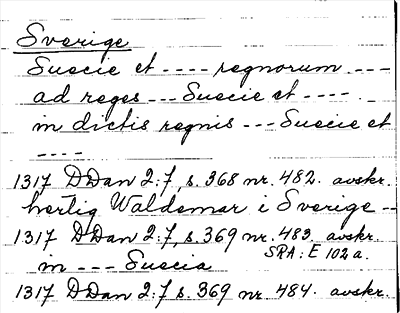 Sverige
Suecie et ---- regnorum ---
ad reges --- Suecie et ----
in dictis regnis --- Suecie et
----
1317 DDan 2:7, s. 368 nr. 482. avskr.
hertig Waldemar i Sverige --
1317 DDan 2:7, s. 369 nr. 483 avskr.
in --- Suecia SRA: E 102 a.
1317 DDan 2:7 s. 369 nr. 484. avskr.